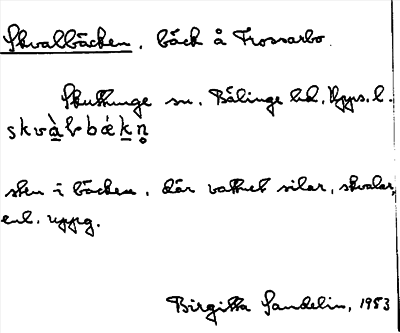 Skvallbäcken, bäck å Trossarbo.
Skuttunge sn. Bälinge hd, Upps. l.
skvàlbǽkn̥
sten i bäcken, där vattnet silar, skvalar,
enl. uppg.
Birgitta Sandelin, 1953